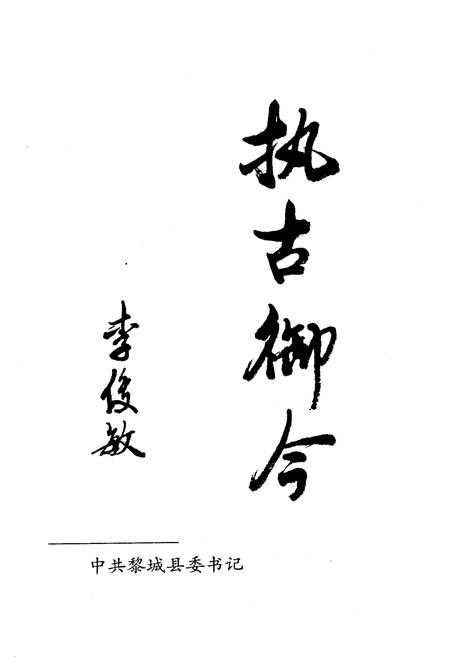 执古御今
李俊敏
中共黎城县委书记